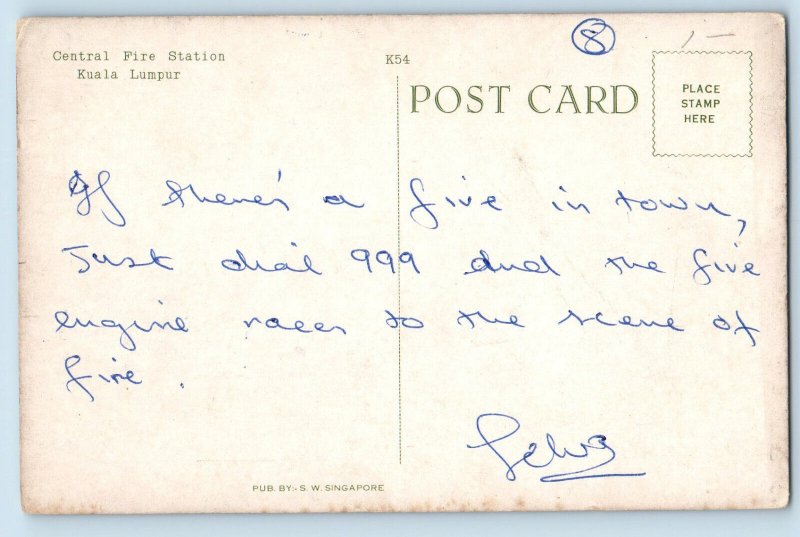 Central Fire Station
Kuala Lumpur
K54
8
1-
POST CARD
PLACE
STAMP
HERE
If there's a fire in town,
Just dial 999 and the fire
engine races to the scene of
fire.
PUB. BY:- S. W. SINGAPORE